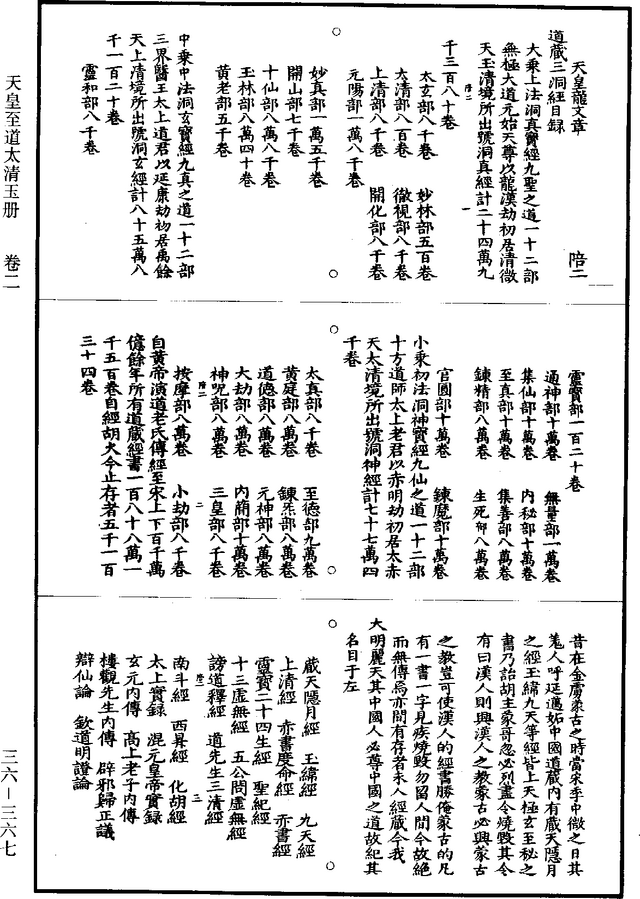 天皇至道太清玉册 卷二
三六—三六七
天皇龍文章 陪二
道藏三洞經目録
大乘上法洞真寶經九聖之道一十二部
無極大道元始天尊以龍漢劫初居清微
天玉清境所出號洞真經計二十四萬九
千三百八十卷
太玄部八千卷 妙林部五百卷
太清部八百卷 微視部八千卷
上清部八千卷 開化部八千卷
元陽部一萬八千卷
妙真部一萬五千卷
開山部七千卷
十仙部八萬八千卷
玉林部八萬四十卷
黄老部五千卷
中乘中法洞玄寶經九真之道一十二部
三界醫王太上道君以延康劫初居禹餘
天上清境所出號洞玄經計八十五萬八
千一百二十卷
靈和部八千卷
靈寶部一百二十卷
通神部十萬卷 無量部一萬卷
集仙部十萬卷 内秘部十萬卷
至真部十萬卷 集善部八萬卷
鍊精部八萬卷 生死部八萬卷
官圓部十萬卷 鍊魔部十萬卷
小乘初法洞神寶經九仙之道一十二部
十方道師太上老君以赤明劫初居太赤
天太清境所出號洞神經計七十七萬四
千卷
太真部八千卷 至德部九萬卷
黄庭部八萬卷 鍊炁部八萬卷
道德部八萬卷 元神部八萬卷
大劫部八萬卷 内簡部十萬卷
神呪部八萬卷 三皇部八千卷
按摩部八萬卷 小劫部八千卷
自黄帝演道老氏傳經至宋上下百千萬
億餘年所有道藏經書一百八十八萬一
千五百卷自經胡火今止存者五千一百
三十四卷
昔在金虜蒙古之時當宋季中微之日其
羌人呼延邁妬中國道藏内有藏天隱月
之經玉緯九天等經皆上天極玄至秘之
書乃詒胡主蒙哥忽必烈盡令燒毀其令
有曰漢人則興漢人之教蒙古必興蒙古
之教豈可使漢人的經書勝俺蒙古的凡
有一書一字見疾燒毀勿留人間今故絶
而無傳焉亦間有存者未人經藏今我
大明麗天其中國人必尊中國之道故紀其
名目于左
藏天隱月經 玉緯經 九天經
上清經 赤書度命經 赤書經
靈寶二十四生經 聖紀經
十三虚無經 五公問虚無經
謗道釋經 道先生三清經
南斗經 西昇經 化胡經
太上實録 混元皇帝實録
玄元内傳 高上老子内傳
樓觀先生内傳 辟邪歸正議
辯仙論 欽道明證論